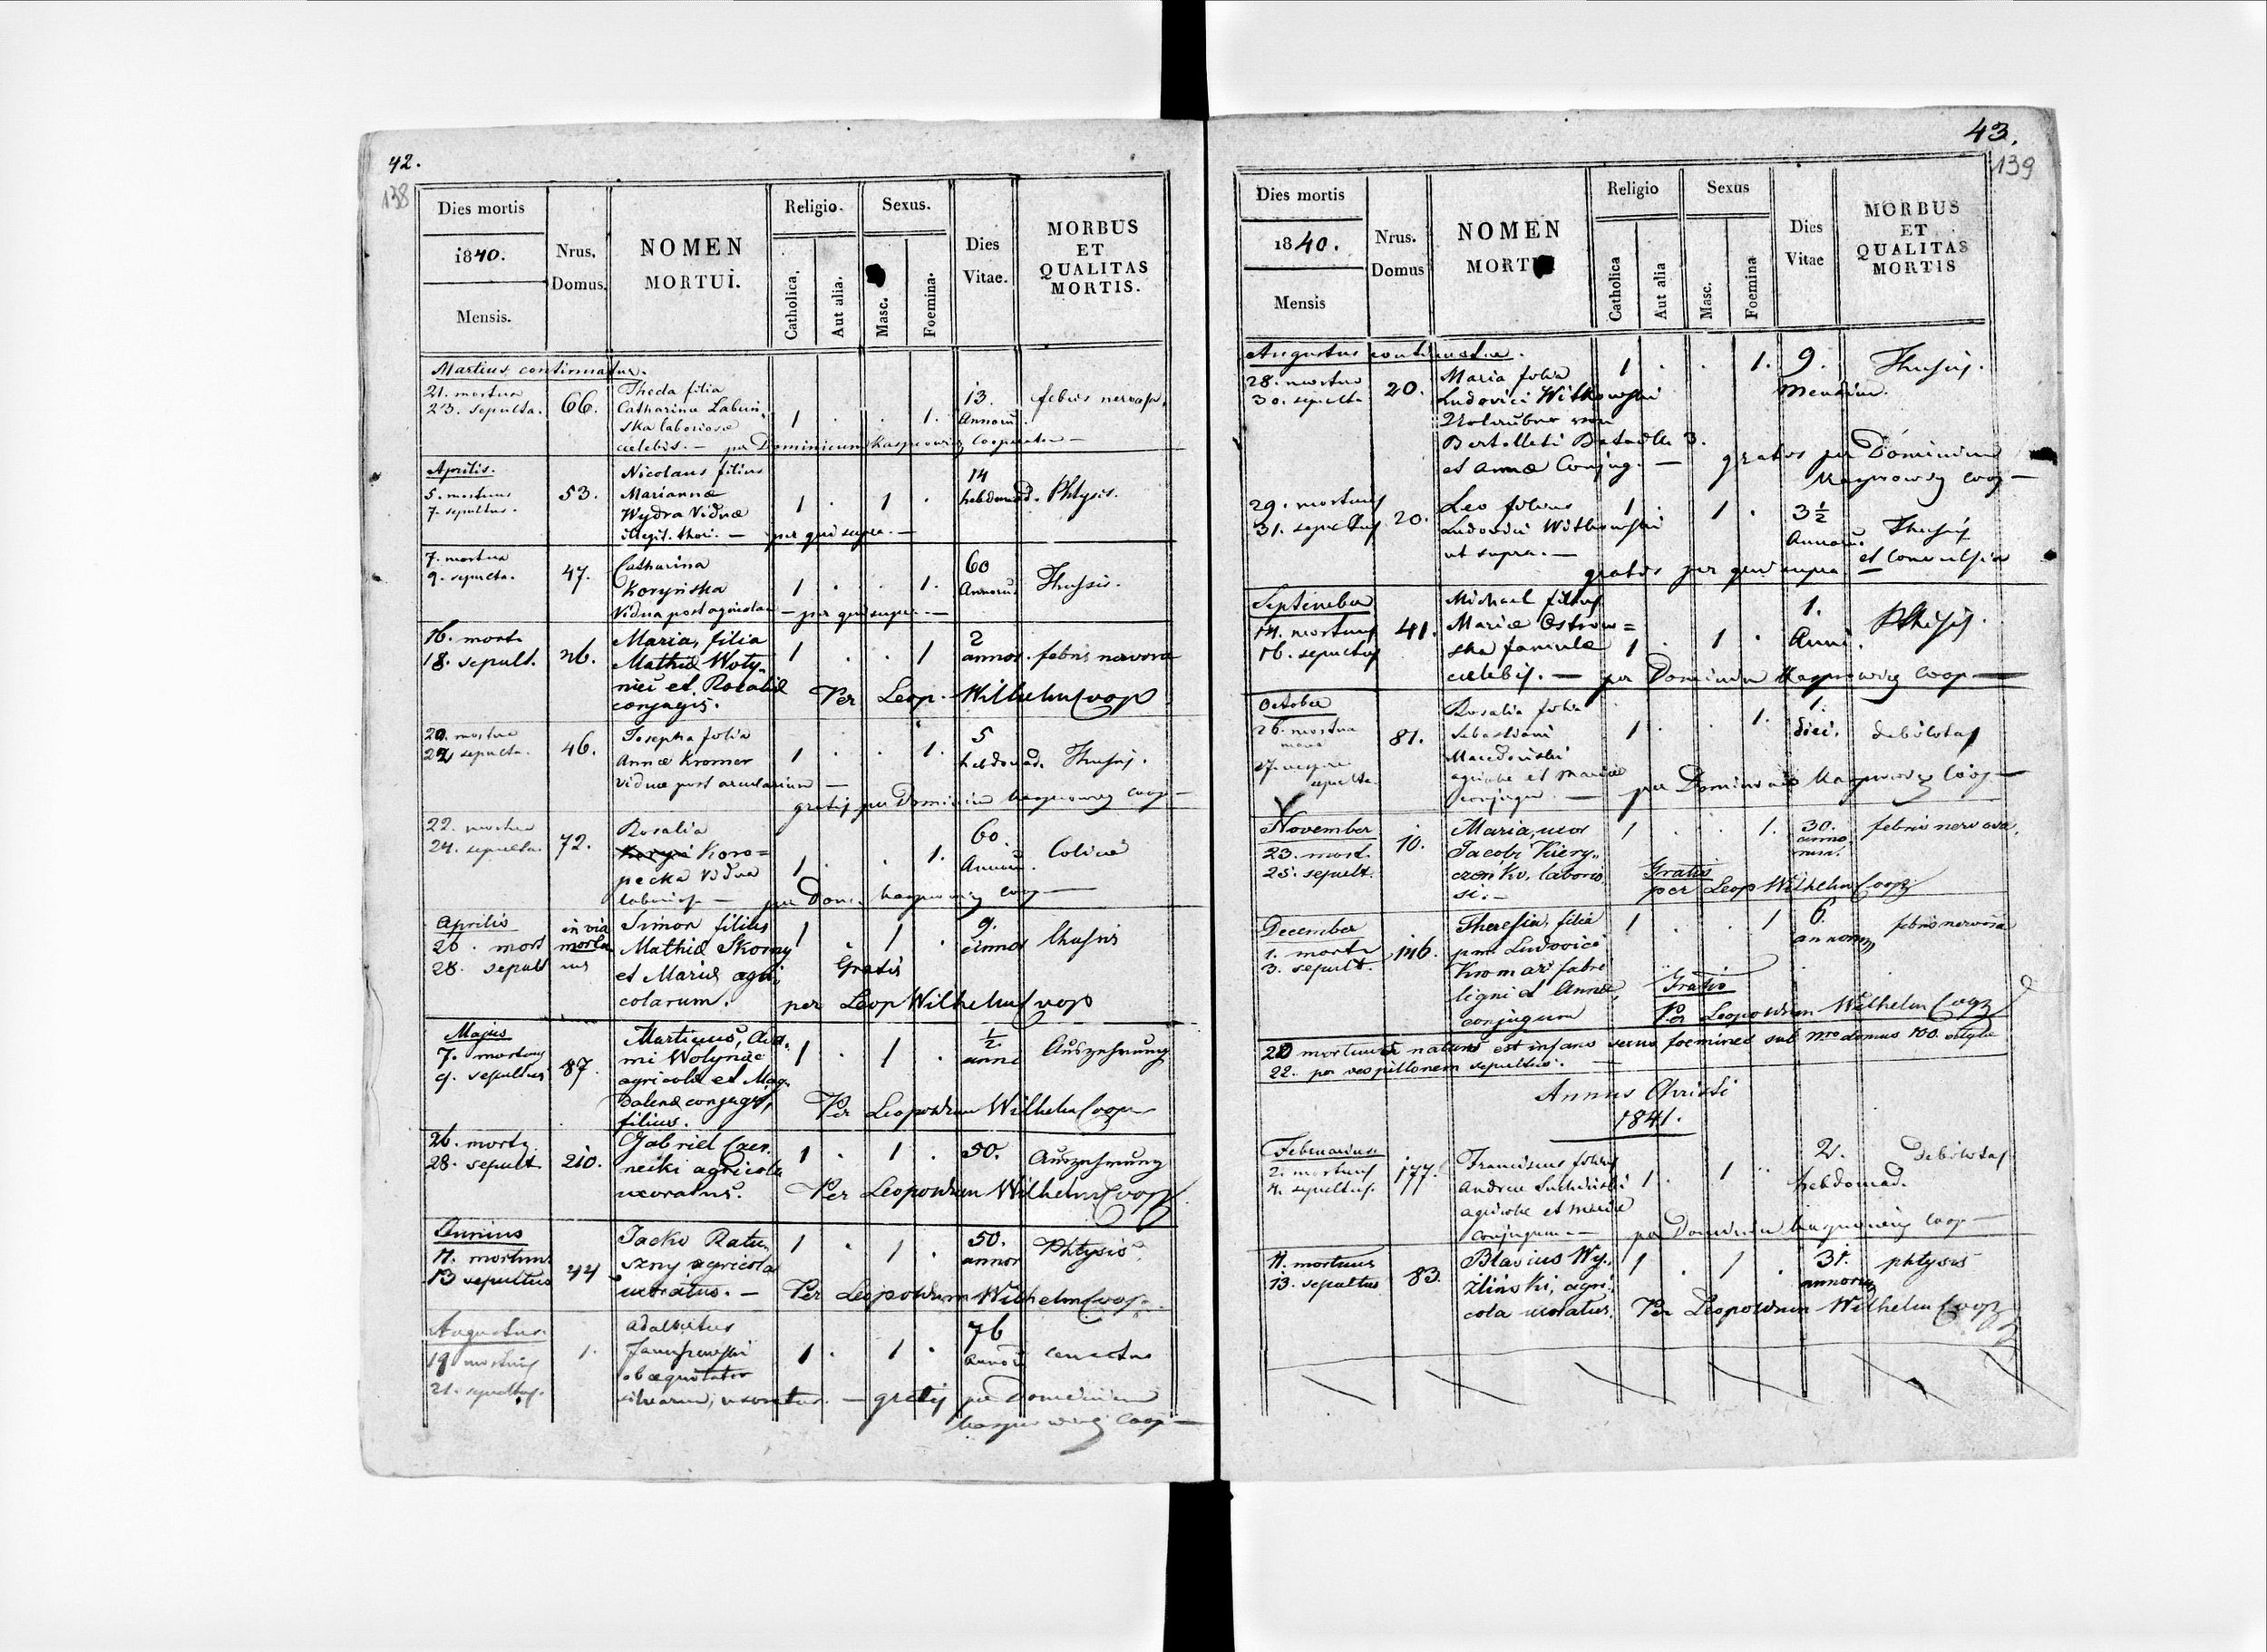 42.
138
Dies mortis
1840.
Mensis.
Nrus. Domus.
NOMEN
MORTUI.
Religio.
Catholica.
Aut alia.
Sexus.
Masc.
Foemina.
Dies
Vitae.
MORBUS
ET
QUALITAS
MORTIS.
Martius continuatur.
21. mortua
23. sepulta.
66.
Thecla filia
Catharina Labuń
ska laboriosa
caelebis. — per Dominicum Kasprowicz Cooperator —
1 . . 1.
13.
Annorū
febris nervosa.
Aprilis.
5. mortuus
7. sepultus.
53.
Nicolaus filius
Mariannæ
Wydra Viduæ
illegit. thori. — per qui supra. —
1 . 1 .
14
hebdomad.
Phtysis.
7. mortua
9. sepulta.
47.
Catharina
Koryńska
Vidua post agricolam — per qui supra. —
1 . . 1.
60
Annorū
Thussis.
16. mort.
18. sepult.
26.
Maria, filia
Mathiæ Woty-
nici et Rosaliæ
conjugis.
1 . . 1
2
annor.
febris nervosa
Per Leop. Wilhelm Coop
20. mortua
22 sepulta.
46.
Josepha filia
Annæ Kromer
viduæ post arcularium —
1 . . 1.
5
hebdomad.
Thussis.
gratis per Dominicum Kasprowicz Coop —
22. mortua
24. sepulta.
72.
Rosalia
Koro=
pecka Vidua
1 . . 1.
60.
Annorū.
per Dom. Kasprowicz Coop —
Aprilis
26. mort
28. sepult
in via
mortu
us
Simon filius
Mathiæ Skorny
et Mariæ agri
colarum.
1 . 1 .
9.
annor
thussis
Gratis
per Leop Wilhelm Coop
Majus
7. mortuus
9. sepultus
87.
Martinus, Ada
mi Wolynie
agricolæ et Mag
dalenæ conjugis,
filius.
1 . 1 .
1/2.
anni
Auszehrung
Per Leopoldum Wilhelm Coop
26. mort
28. sepult
210.
Gabriel Czer
necki agricola
uxoratus.
1 . 1 .
50.
Auszehrung
Per Leopoldum Wilhelm Coop
Junius
11. mortuus
13 sepultus
44
Jacko Ratu
szny agricola
uxoratus. —
1 . 1 .
50.
annor
Phtysis
Per Leopoldum Wilhelm Coop.
Augustus.
19 mortuus
21. sepultus.
1.
Adalbertus
Januszewski
obæquitator
silvarum, uxoratus. — gratis per Dominicum
Kasprowicz Coop —
1 . 1 .
76
Annorū
43.
139
Dies mortis
1840.
Mensis
Nrus.
Domus
NOMEN
MORTUI
Religio
Catholica
Aut alia
Sexus
Masc.
Foemina
Dies
Vitae
MORBUS
ET
QUALITAS
MORTIS
Augustus continuatur.
28. mortua
30. sepulta
20.
Maria filia
Ludovici Witkowski
Bertolleti 3.
et Annæ Conjug. —
1 . . 1.
9.
Mensium.
Thussis.
gratis per Dominicum
Kasprowicz Coop —
29. mortuus
31. sepultus
20.
Leo filius
Ludovici Witkowski
ut supra. —
1 . 1 .
3 1/2
Annorū.
Thussis
et Convulsio
gratis per qui supra
September
14. mortuus
16. sepultus
41.
Michael filius
Mariæ Ostrow=
ska famulæ
caelebis. —
1 . 1 .
1.
Anni.
Phtisis.
per Dominicum Kasprowicz Coop —
October
26. mortua
mane
27. vespere
sepulta.
81.
Rosalia filia
Sebastiani
agricolæ et Mariæ
conjugum —
1 . . 1.
1.
diei.
debilitas
per Dominicum Kasprowicz Coop —
November
23. mort.
25. sepult.
10.
Maria, uxor
Jacobi Kiery-
czeńko, laborio
si. —
1 . . 1.
30.
anno
rum.
febris nervosa.
Gratis
per Leop Wilhelm Coop
December
1. mort.
3. sepult.
146.
Theresia, filia
pm. Ludovici
Kromar fabri
ligni et Annæ,
conjugum
1 . . 1
6.
annorum
febris nervosa
Gratis
Per Leopoldum Wilhelm Coop
20 mortuus natus est infans sexus foeminei sub Nro domus 100.
22. per vespillonem sepultus. —
Annus Christi
1841.
Februarius
2. mortuus
4. sepultus.
177.
Franciscus filius
Andreæ
agricolæ et Mariæ
Conjugum —
1 . 1 .
2.
hebdomad.
Debilitas
per Dominicum Kasprowicz Coop —
11. mortuus
13. sepultus
83.
Blasius Wy-
żliński, agri
cola uxoratus.
1 . 1 .
31.
annorum
phtysis
Per Leopoldum Wilhelm Coop